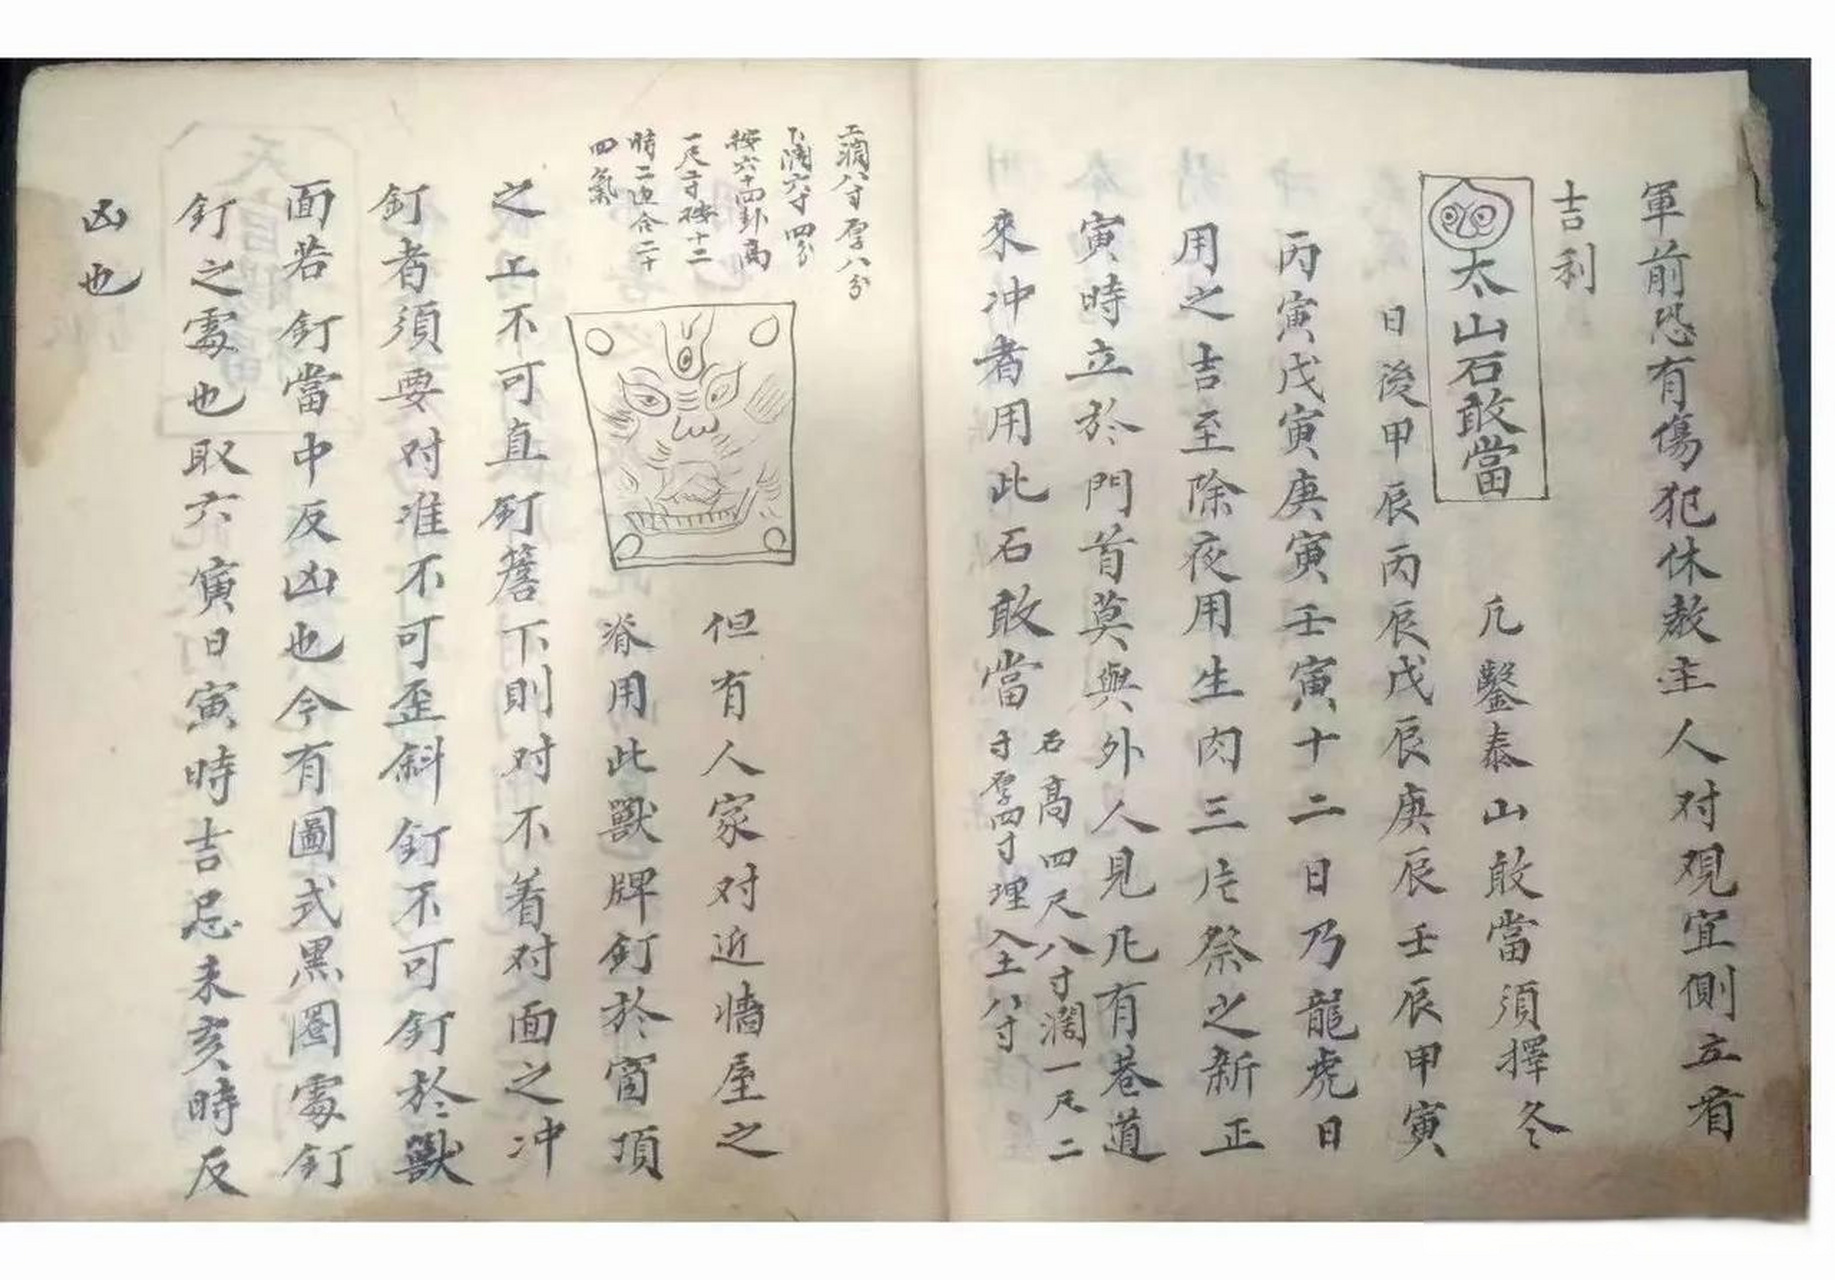 軍前恐有傷犯休教主人对观宜側立着
吉利
太山石敢當
凡鑿泰山敢當須擇冬
日後甲辰丙辰戊辰庚辰壬辰甲寅
丙寅戊寅庚寅壬寅十二日乃龍虎日
用之吉至除夜用生肉三片祭之新正
寅時立於門首莫與外人見凡有巷道
來冲者用此石敢當
石高四尺八寸濶一尺二
寸厚四寸埋入土八寸
上濶八寸厚八分
下濶六寸四分
按六十四卦高
一尺二寸按十二
時二边合二十
四氣
但有人家对近墻屋之
脊用此獸牌釘於窗頂
之上不可直釘簷下則对不着对面之冲
釘者須要对准不可歪斜釘不可釘於獸
面若釘當中反凶也今有圖式黑圈處釘
釘之處也取六寅日寅時吉忌未亥時反
凶也